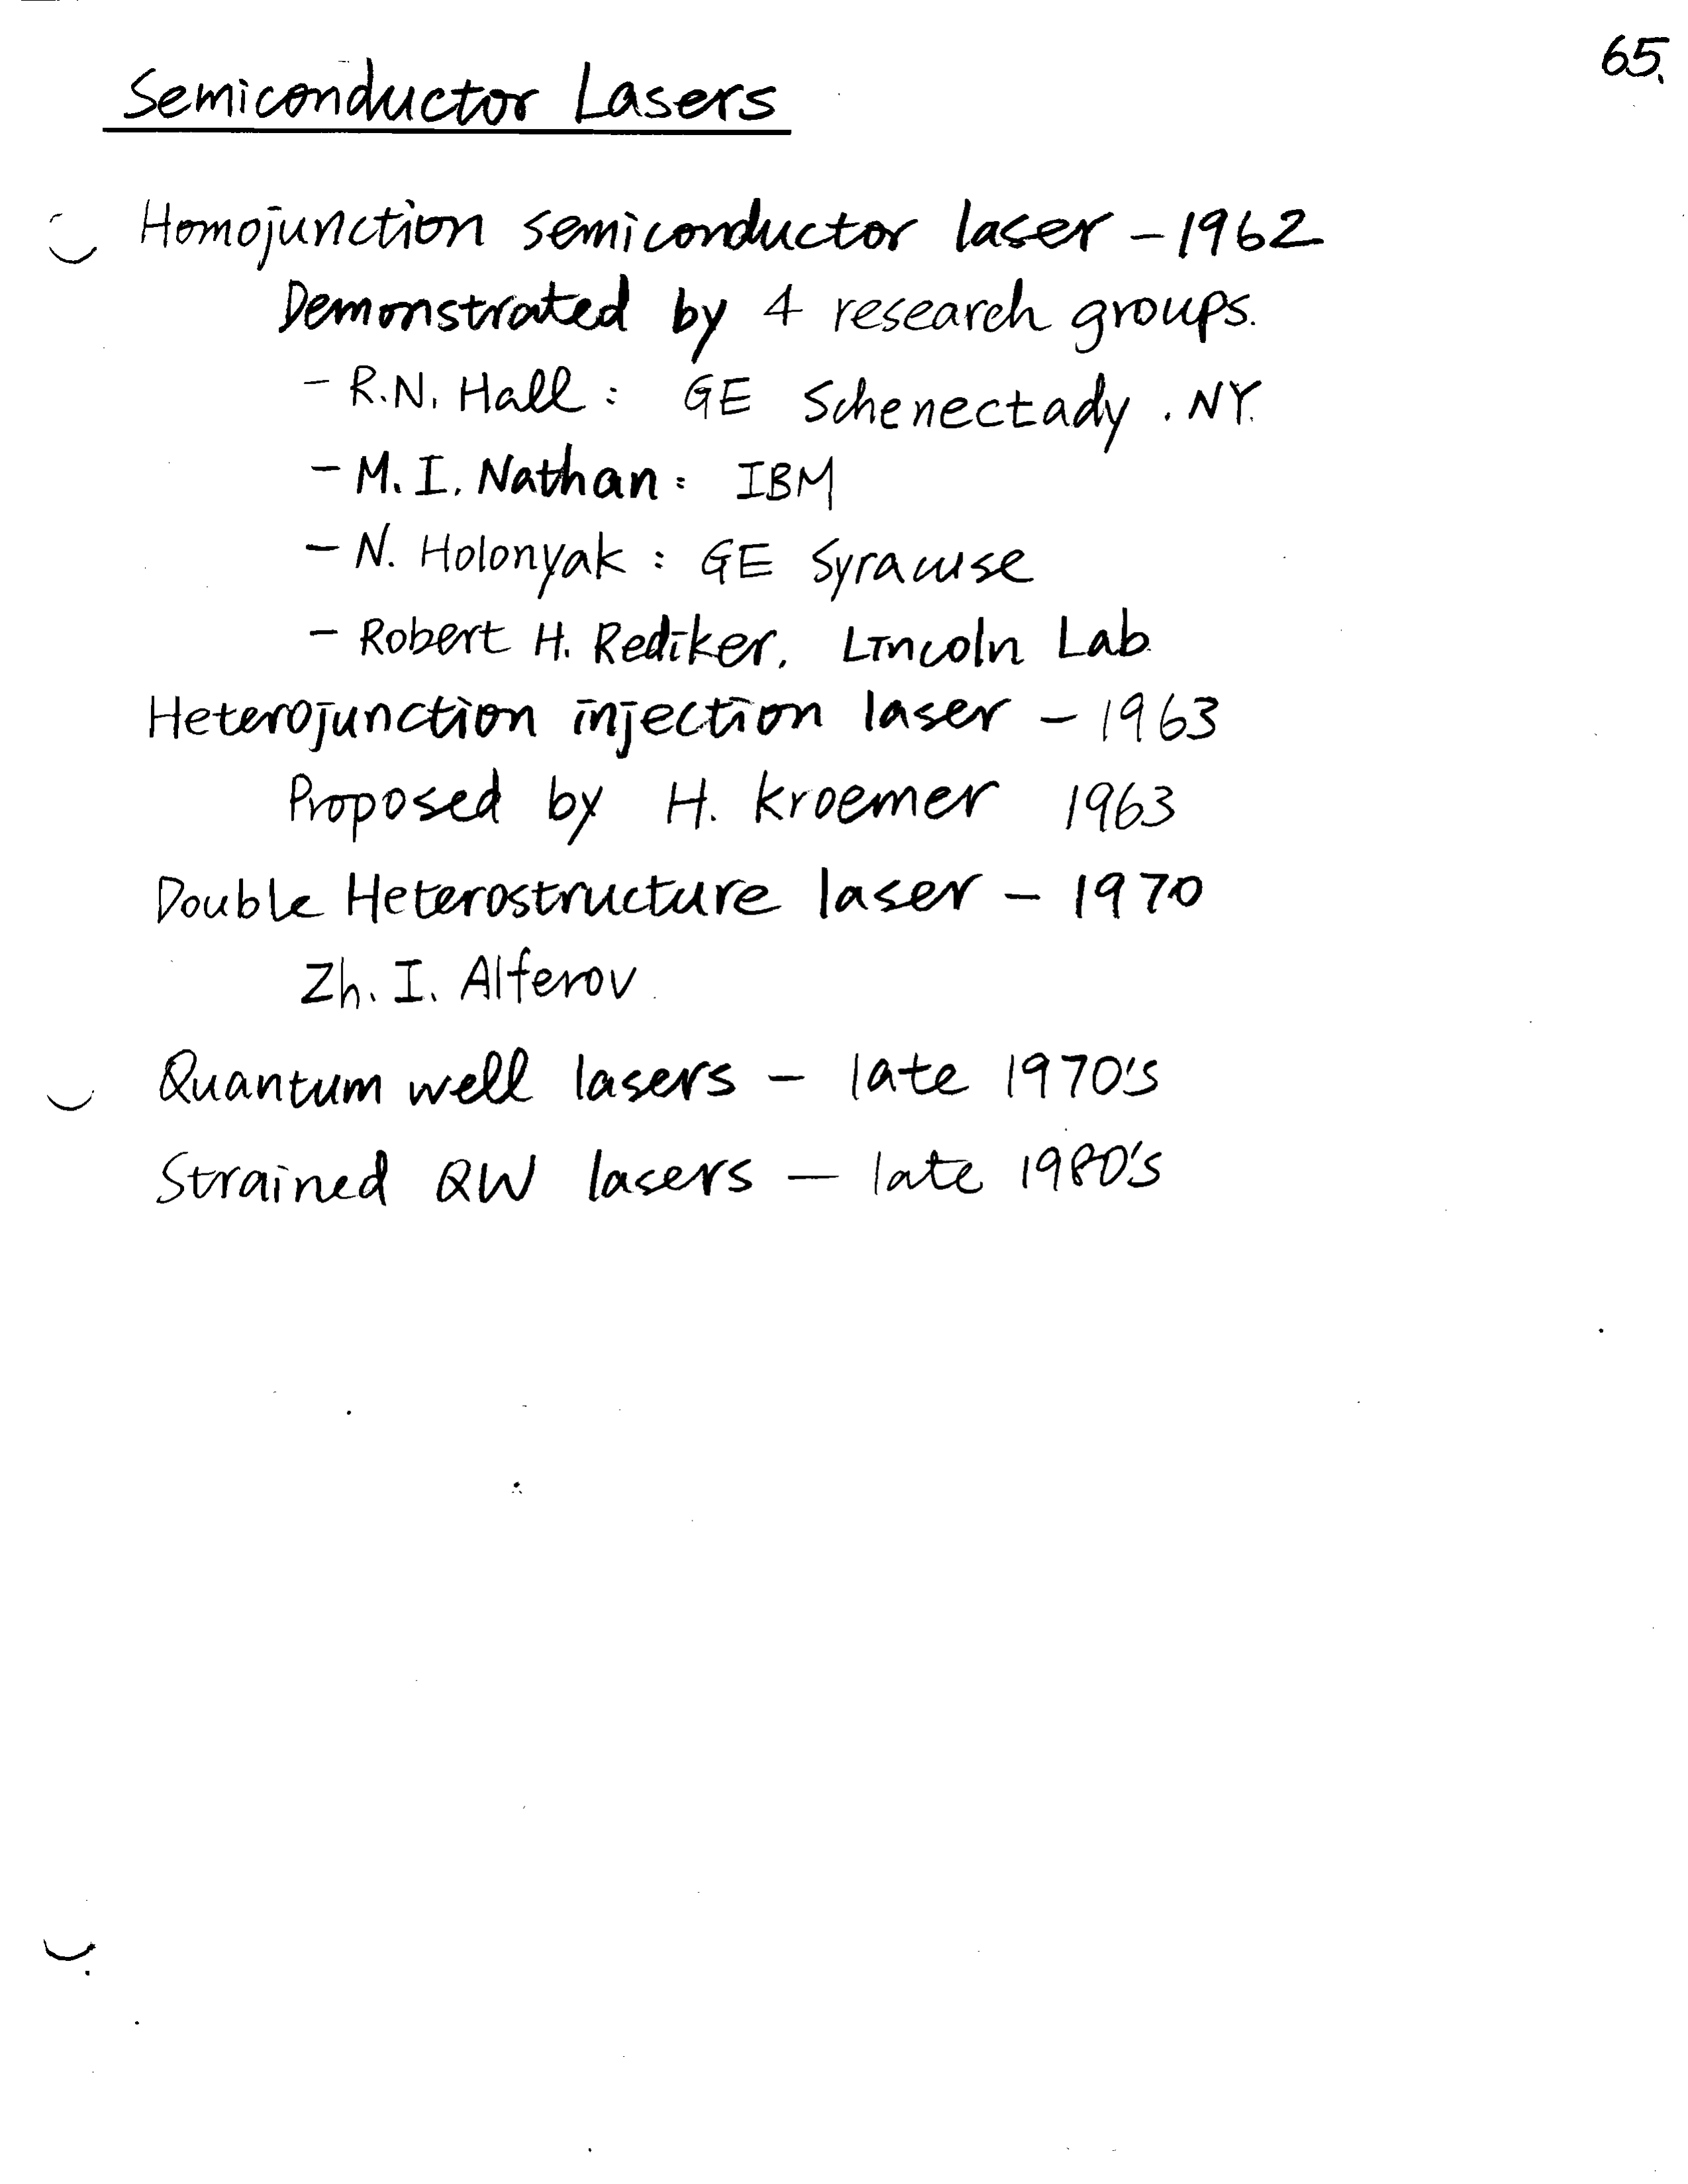 65.
Semiconductor Lasers
Homojunction semiconductor laser - 1962
Demonstrated by 4 research groups.
- R.N. Hall : GE Schenectady . NY.
- M. I. Nathan : IBM
- N. Holonyak : GE Syracuse
- Robert H. Rediker, Lincoln Lab
Heterojunction injection laser - 1963
Proposed by H. Kroemer 1963
Double Heterostructure laser - 1970
Zh. I. Alferov
Quantum well lasers - late 1970's
Strained QW lasers - late 1980's